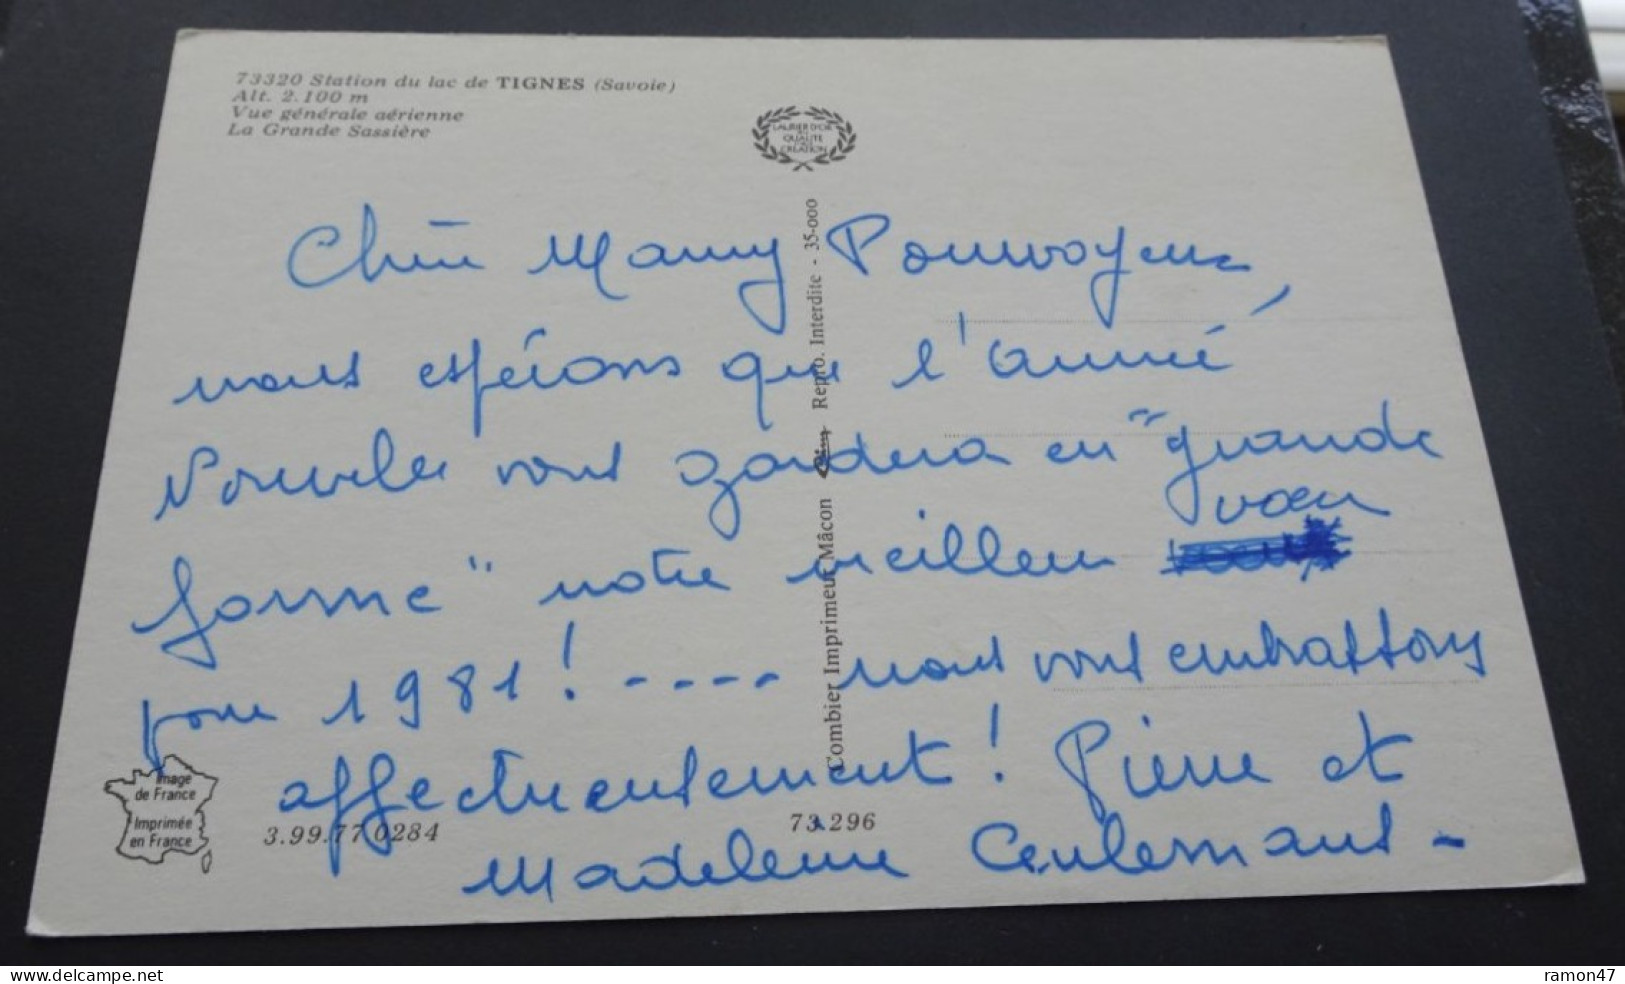 73320 Station du lac de TIGNES (Savoie)
Alt. 2.100 m
Vue générale aérienne
La Grande Sassière
LAURIER D'OR
QUALITE
CREATION
Chère Mamy Pourvoyeur,
nous espérons que l'année
Nouvelle vous gardera en "grande
forme" notre meilleur vœu
pour 1981! ---- nous vous embrassons
affectueusement! Pierre et
Madeleine Ceulemans -
Combier Imprimeur Mâcon Cim Repro. Interdite - 35-000
Image
de France
Imprimée
en France
3.99.77.0284
73.296
www.delcampe.net
ramon47